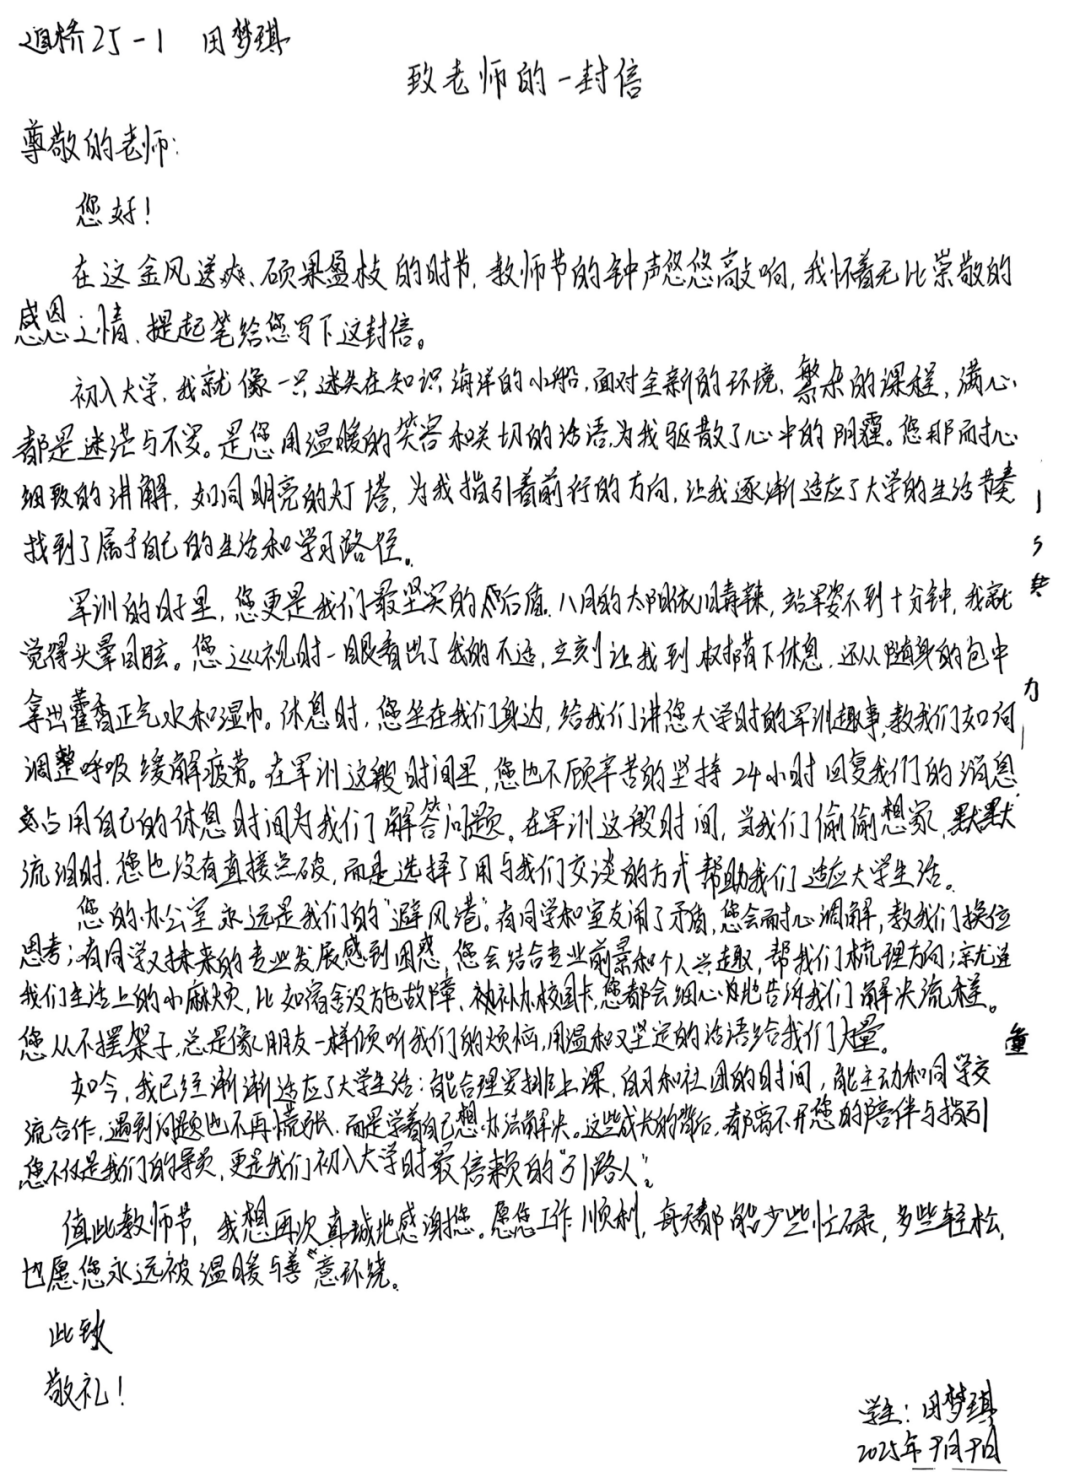 道桥25-1 田梦琪
致老师的一封信
尊敬的老师:
您好!
在这金风送爽、硕果盈枝的时节,教师节的钟声悠悠敲响,我怀着无比崇敬的
感恩之情、提起笔给您写下这封信。
初入大学,我就像一只迷失在知识海洋的小船,面对全新的环境、繁杂的课程,满心
都是迷茫与不安。是您用温暖的笑容和关切的话语,为我驱散了心中的阴霾。您那耐心
细致的讲解,如同明亮的灯塔,为我指引着前行的方向,让我逐渐适应了大学的生活节奏
找到了属于自己的生活和学习路径。
军训的日子里,您更是我们最坚实的后盾。八月的太阳依旧毒辣,站军姿不到十分钟,我就
觉得头晕目眩。您巡视时一眼看出了我的不适,立刻让我到树荫下休息,还从随身的包中
拿出藿香正气水和湿巾。休息时,您坐在我们身边,给我们讲您大学时的军训趣事,教我们如何
调整呼吸缓解疲劳。在军训这段时间里,您也不顾辛苦的坚持24小时回复我们的消息
占用自己的休息时间为我们解答问题。在军训这段时间,当我们偷偷想家,默默
流泪时,您也没有直接点破,而是选择了用与我们交谈的方式帮助我们适应大学生活。
您的办公室永远是我们的“避风港”。有同学和室友闹了矛盾,您会耐心调解,教我们换位
思考;有同学对未来的专业发展感到困惑,您会结合专业前景和个人兴趣,帮我们梳理方向;就连
我们生活上的小麻烦,比如宿舍设施故障、补办校园卡,您都会细心地告诉我们解决流程。
您从不摆架子,总是像朋友一样倾听我们的烦恼,用温和又坚定的话语给我们力量。
如今,我已经渐渐适应了大学生活:能合理安排上课、自习和社团的时间,能主动和同学交
流合作,遇到问题也不再慌张,而是学着自己想办法解决。这些成长的背后,都离不开您的陪伴与指引
您不仅是我们的导员,更是我们初入大学时最信赖的“引路人”。
值此教师节,我想再次真诚地感谢您。愿您工作顺利,每天都能少些忙碌,多些轻松,
也愿您永远被温暖与善意环绕。
此致
敬礼!
学生:田梦琪
2025年9月9日